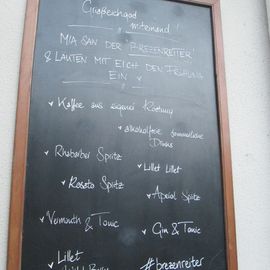 Griaßeichgod
miteinand!
MIA SAN DER "BREZENREITER"
& LAUTEN MIT EICH DEN FRÜHLING
EIN
Kaffee aus eigener Röstung
alkoholfreie sommerliche
Drinks
Rhabarber Spritz
Lillet Lillet
Rosato Spritz
Aperol Spritz
Vermouth & Tonic
Gin & Tonic
Lillet
#brezenreiter